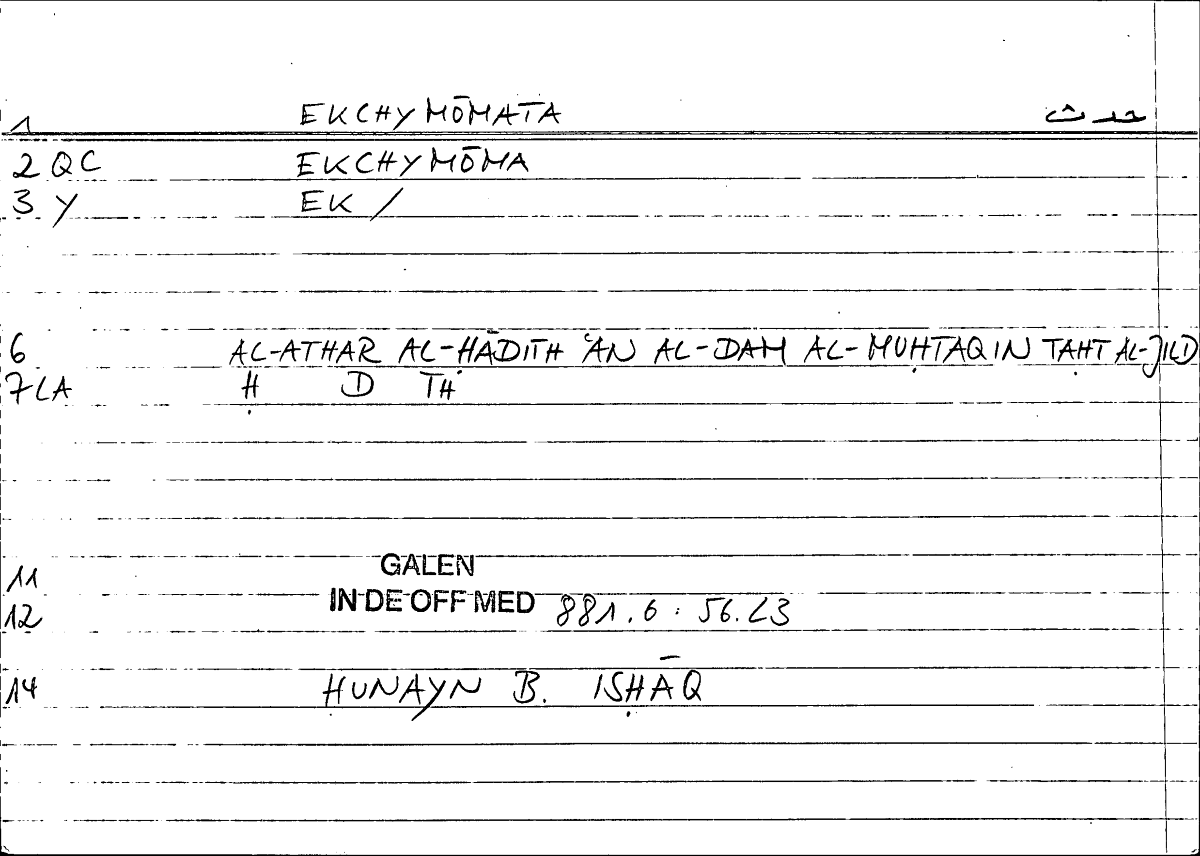 1 EKCHYMŌMATA حدث
2 QC EKCHYMŌMA
3 Y EK /
6 AL-ATHAR AL-ḤĀDITH ʿAN AL-DAM AL-MUḤTAQIN TAḤT AL-JILD
7 LA Ḥ D TH
11 GALEN
12 IN DE OFF MED 881.6 : 56.23
14 ḤUNAYN B. ISḤĀQ